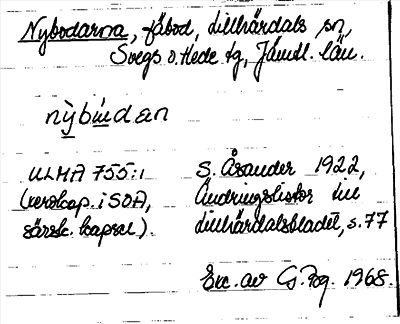 Nybodarna, fäbod, Lillhärdals sn,
Svegs o. Hede tg, Jämtl. län.
nỳbúdan
ULMA 755:1 S. Åsander 1922,
(verskap. i SOA, Ändringslistor till
särsk. kapsel). Lillhärdalsbladet, s. 77
Exc. av G. Pog. 1968.